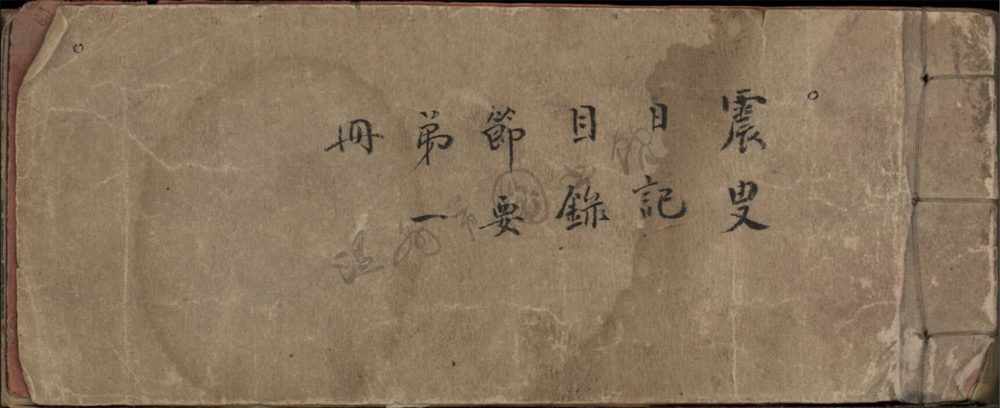 震叟
日記
目錄
節要
弟一
冊